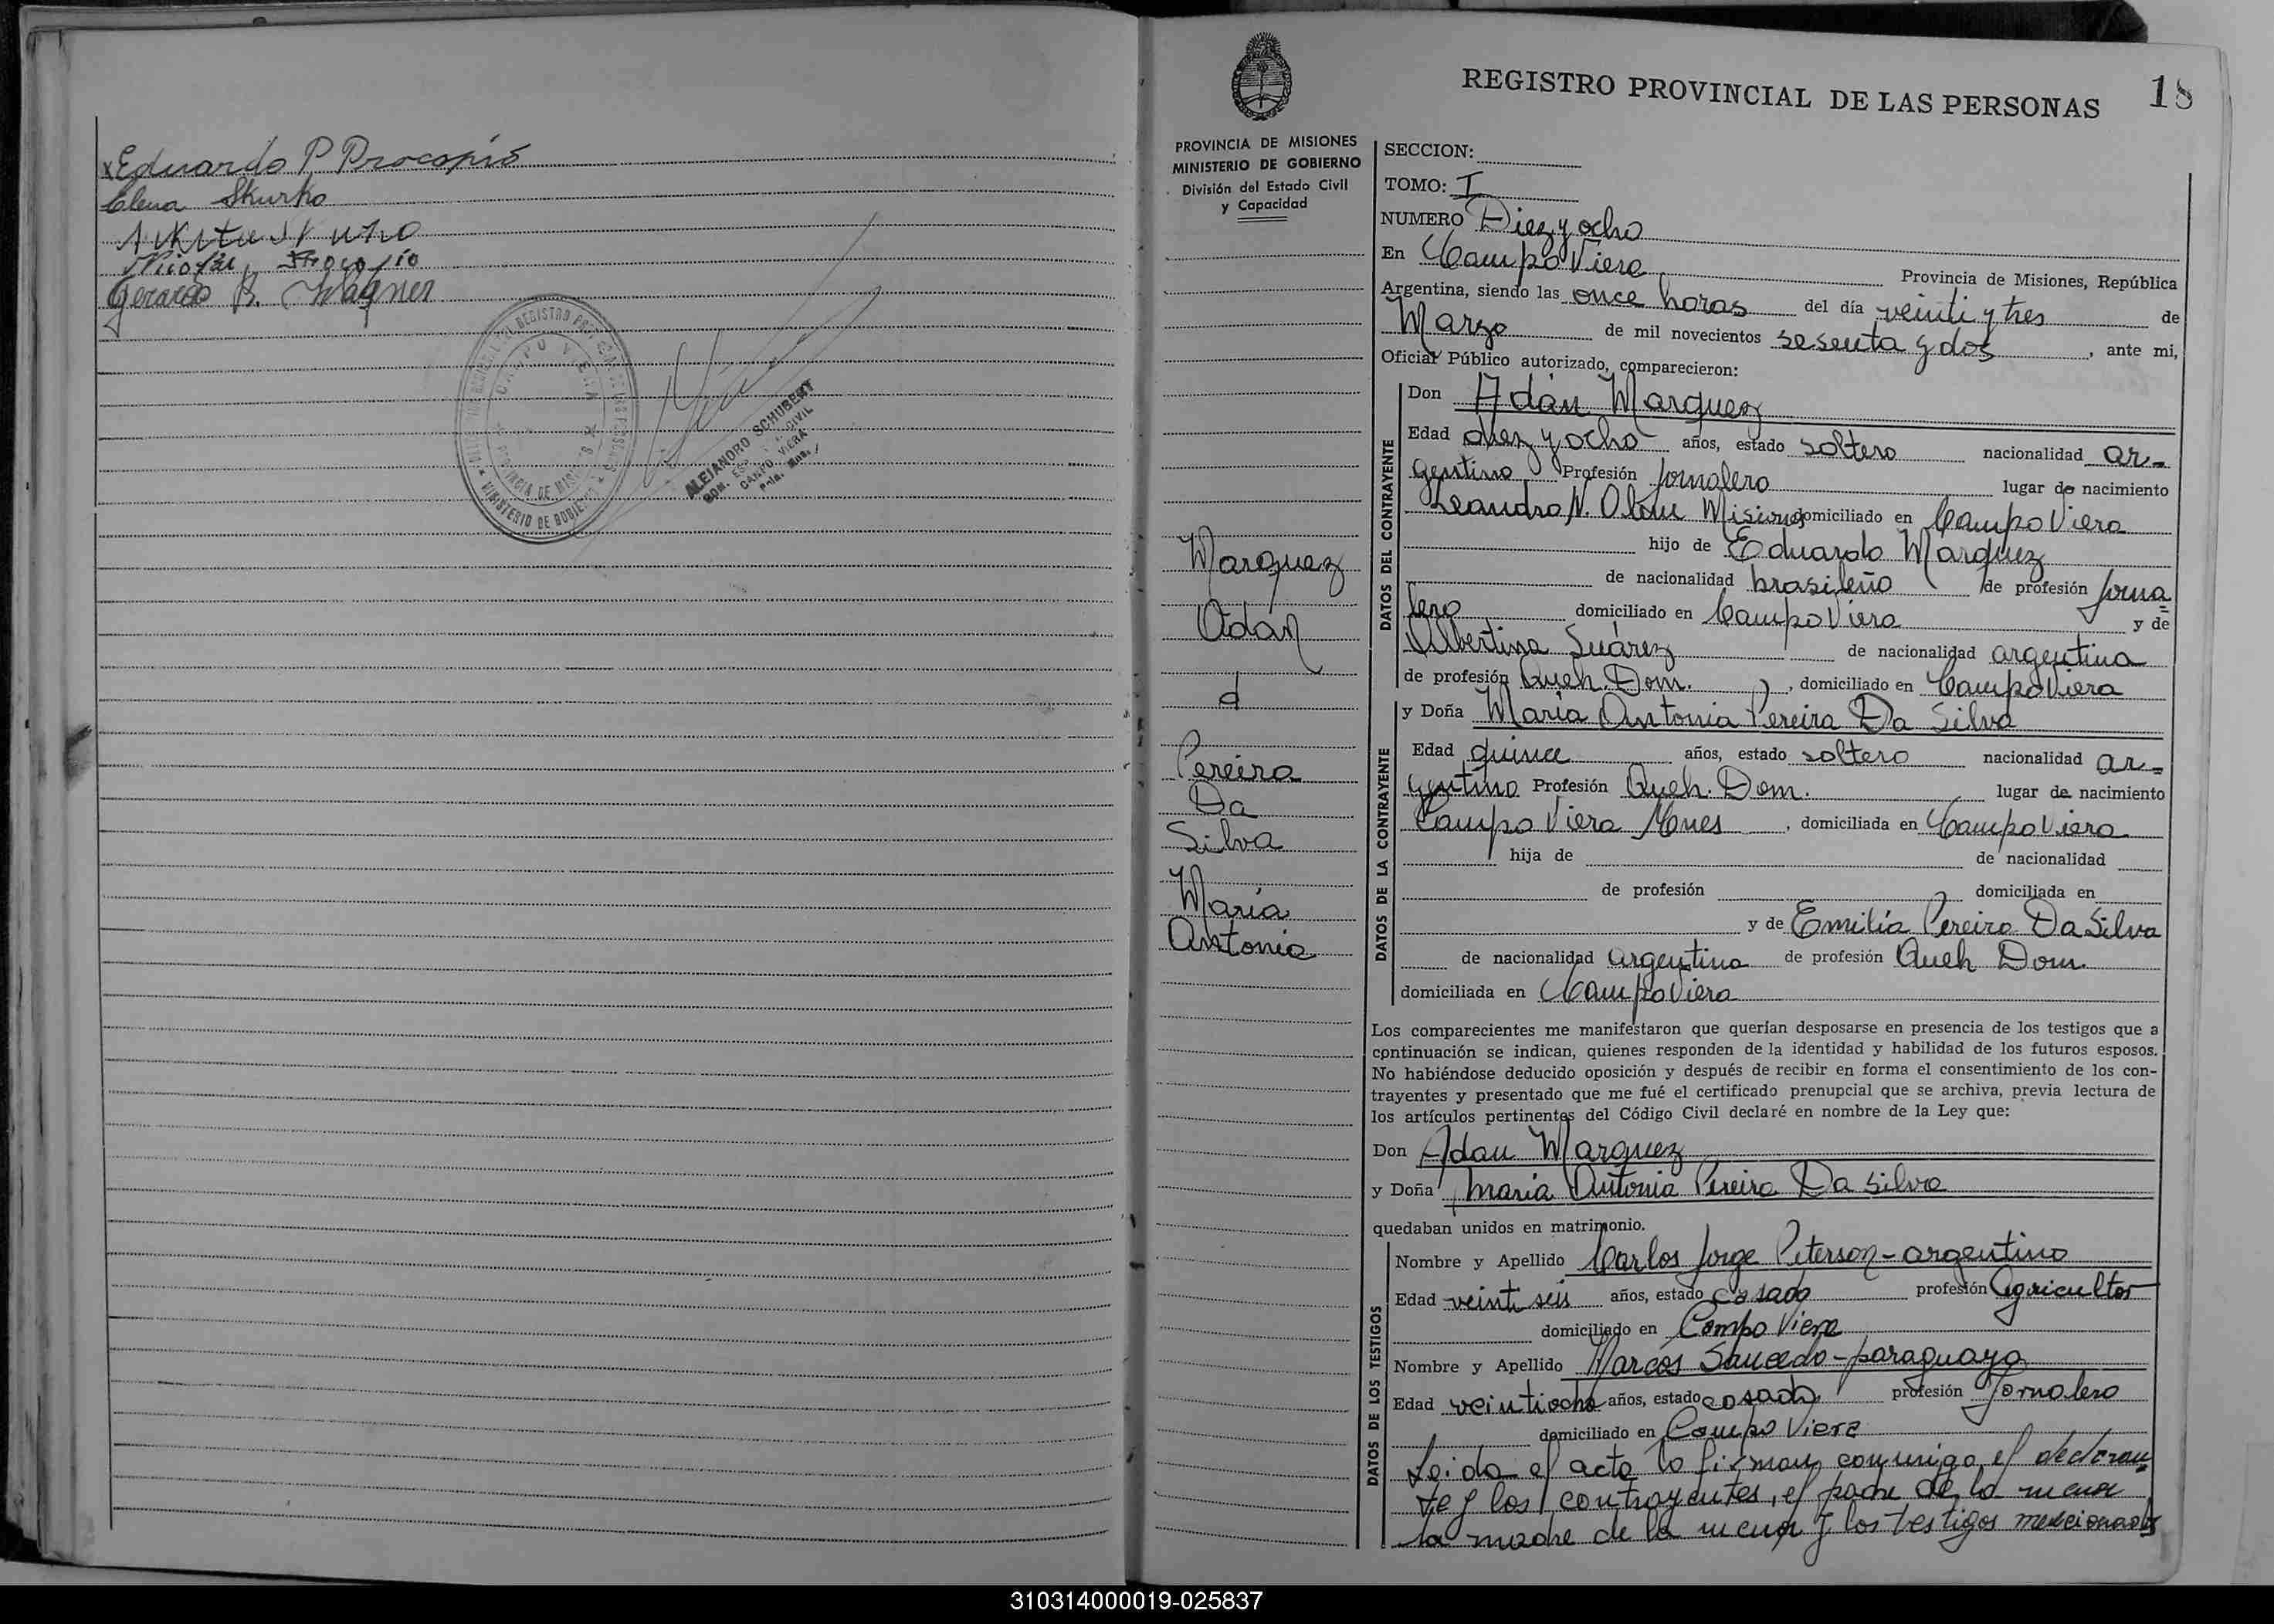 Eduardo P Procopio
Elena Skurko
Procopio
Gerardo B. Wagner
CAMPO VIERA
PROVINCIA DE MISIONES
MINISTERIO DE GOBIERNO
ALEJANDRO SCHUBERT
CIVIL
CAMPO VIERA
REGISTRO PROVINCIAL DE LAS PERSONAS
18
PROVINCIA DE MISIONES
MINISTERIO DE GOBIERNO
División del Estado Civil
y Capacidad
Marquez
Adán
Pereira
Da
Silva
María
Antonia
SECCION:
TOMO: I
NUMERO Diez y ocho
En Campo Viera Provincia de Misiones, República
Argentina, siendo las once horas del día veinti y tres de
Marzo de mil novecientos sesenta y dos, ante mi,
Oficial Público autorizado, comparecieron:
DATOS DEL CONTRAYENTE
Don Adán Marquez
Edad diez y ocho años, estado soltero nacionalidad ar-
gentino Profesión Jornalero lugar de nacimiento
Leandro N. Alem Misiones domiciliado en Campo Viera
hijo de Eduardo Marquez
de nacionalidad brasileño de profesión Jorna
lero domiciliado en Campo Viera y de
Albertina Suárez de nacionalidad argentina
de profesión Queh. Dom., domiciliado en Campo Viera
DATOS DE LA CONTRAYENTE
y Doña María Antonia Pereira Da Silva
Edad quince años, estado soltera nacionalidad ar=
gentina Profesión Queh. Dom. lugar de nacimiento
Campo Viera Mnes, domiciliada en Campo Viera
hija de de nacionalidad
de profesión domiciliada en
y de Emilia Pereira Da Silva
de nacionalidad argentina de profesión Queh Dom.
domiciliada en Campo Viera
Los comparecientes me manifestaron que querían desposarse en presencia de los testigos que a
continuación se indican, quienes responden de la identidad y habilidad de los futuros esposos.
No habiéndose deducido oposición y después de recibir en forma el consentimiento de los con-
trayentes y presentado que me fué el certificado prenupcial que se archiva, previa lectura de
los artículos pertinentes del Código Civil declaré en nombre de la Ley que:
Don Adan Marquez
y Doña María Antonia Pereira Da Silva
quedaban unidos en matrimonio.
DATOS DE LOS TESTIGOS
Nombre y Apellido Carlos Jorge Peterson - argentino
Edad veinti seis años, estado casado profesión Agricultor
domiciliado en Campo Viera
Nombre y Apellido Marcos Saucedo - paraguayo
Edad veintiocho años, estado casado profesión Jornalero
domiciliado en Campo Viera
Leida el acta lo firman conmigo, el declaran
te y los contrayentes, el padre de la menor
la madre de la menor y los testigos mencionados
310314000019-025837